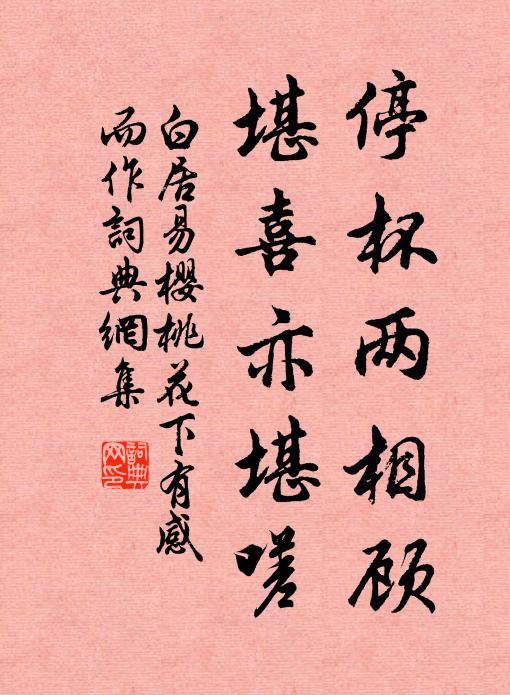 停杯两相顾
堪喜亦堪嗟
白居易櫻桃花下有感
而作詞典網集
詞典
网印